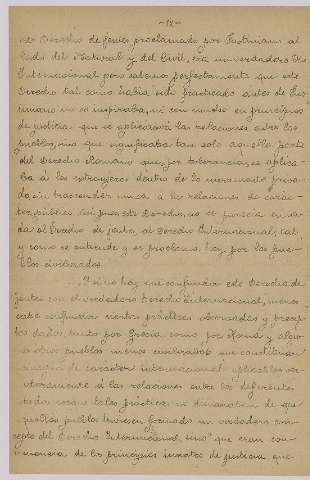 -12-
Derecho de gentes, proclamado por Justiniano al
lado del Natural y del Civil, era un verdadero Dº
Internacional; pero sabemos perfectamente que este
Derecho tal como había sido practicado antes de Jus
tiniano no se inspiraba, ni con mucho en principios
de justicia que se aplicasen a las relaciones entre los
pueblos, sino que significaba tan solo aquella parte
del Derecho Romano que, por tolerancia, se aplica-
ba á los extranjeros dentro de lo meramente priva-
do, sin trascender nunca á las relaciones de carác-
ter público; así pues este Derecho, no se parecía en na-
da al Derecho de gentes, al Derecho Internacional, tal
y como se entiende y se proclama hoy por los pue-
blos civilizados.
Y si no hay que confundir este Derecho de
gentes con el verdadero Derecho Internacional, menos
cabe confundir ciertas prácticas observadas y precep
tos dados, tanto por Grecia como por Roma y algu-
nos otros pueblos menos
de carácter internacional aplicables
á las relaciones entre los diferentes
porque tales prácticas no dimanaban de que
aquellos pueblos tuviesen formado un verdadero con-
cepto del Derecho Internacional, sino que eran como
manera de los principios innatos de justicia que